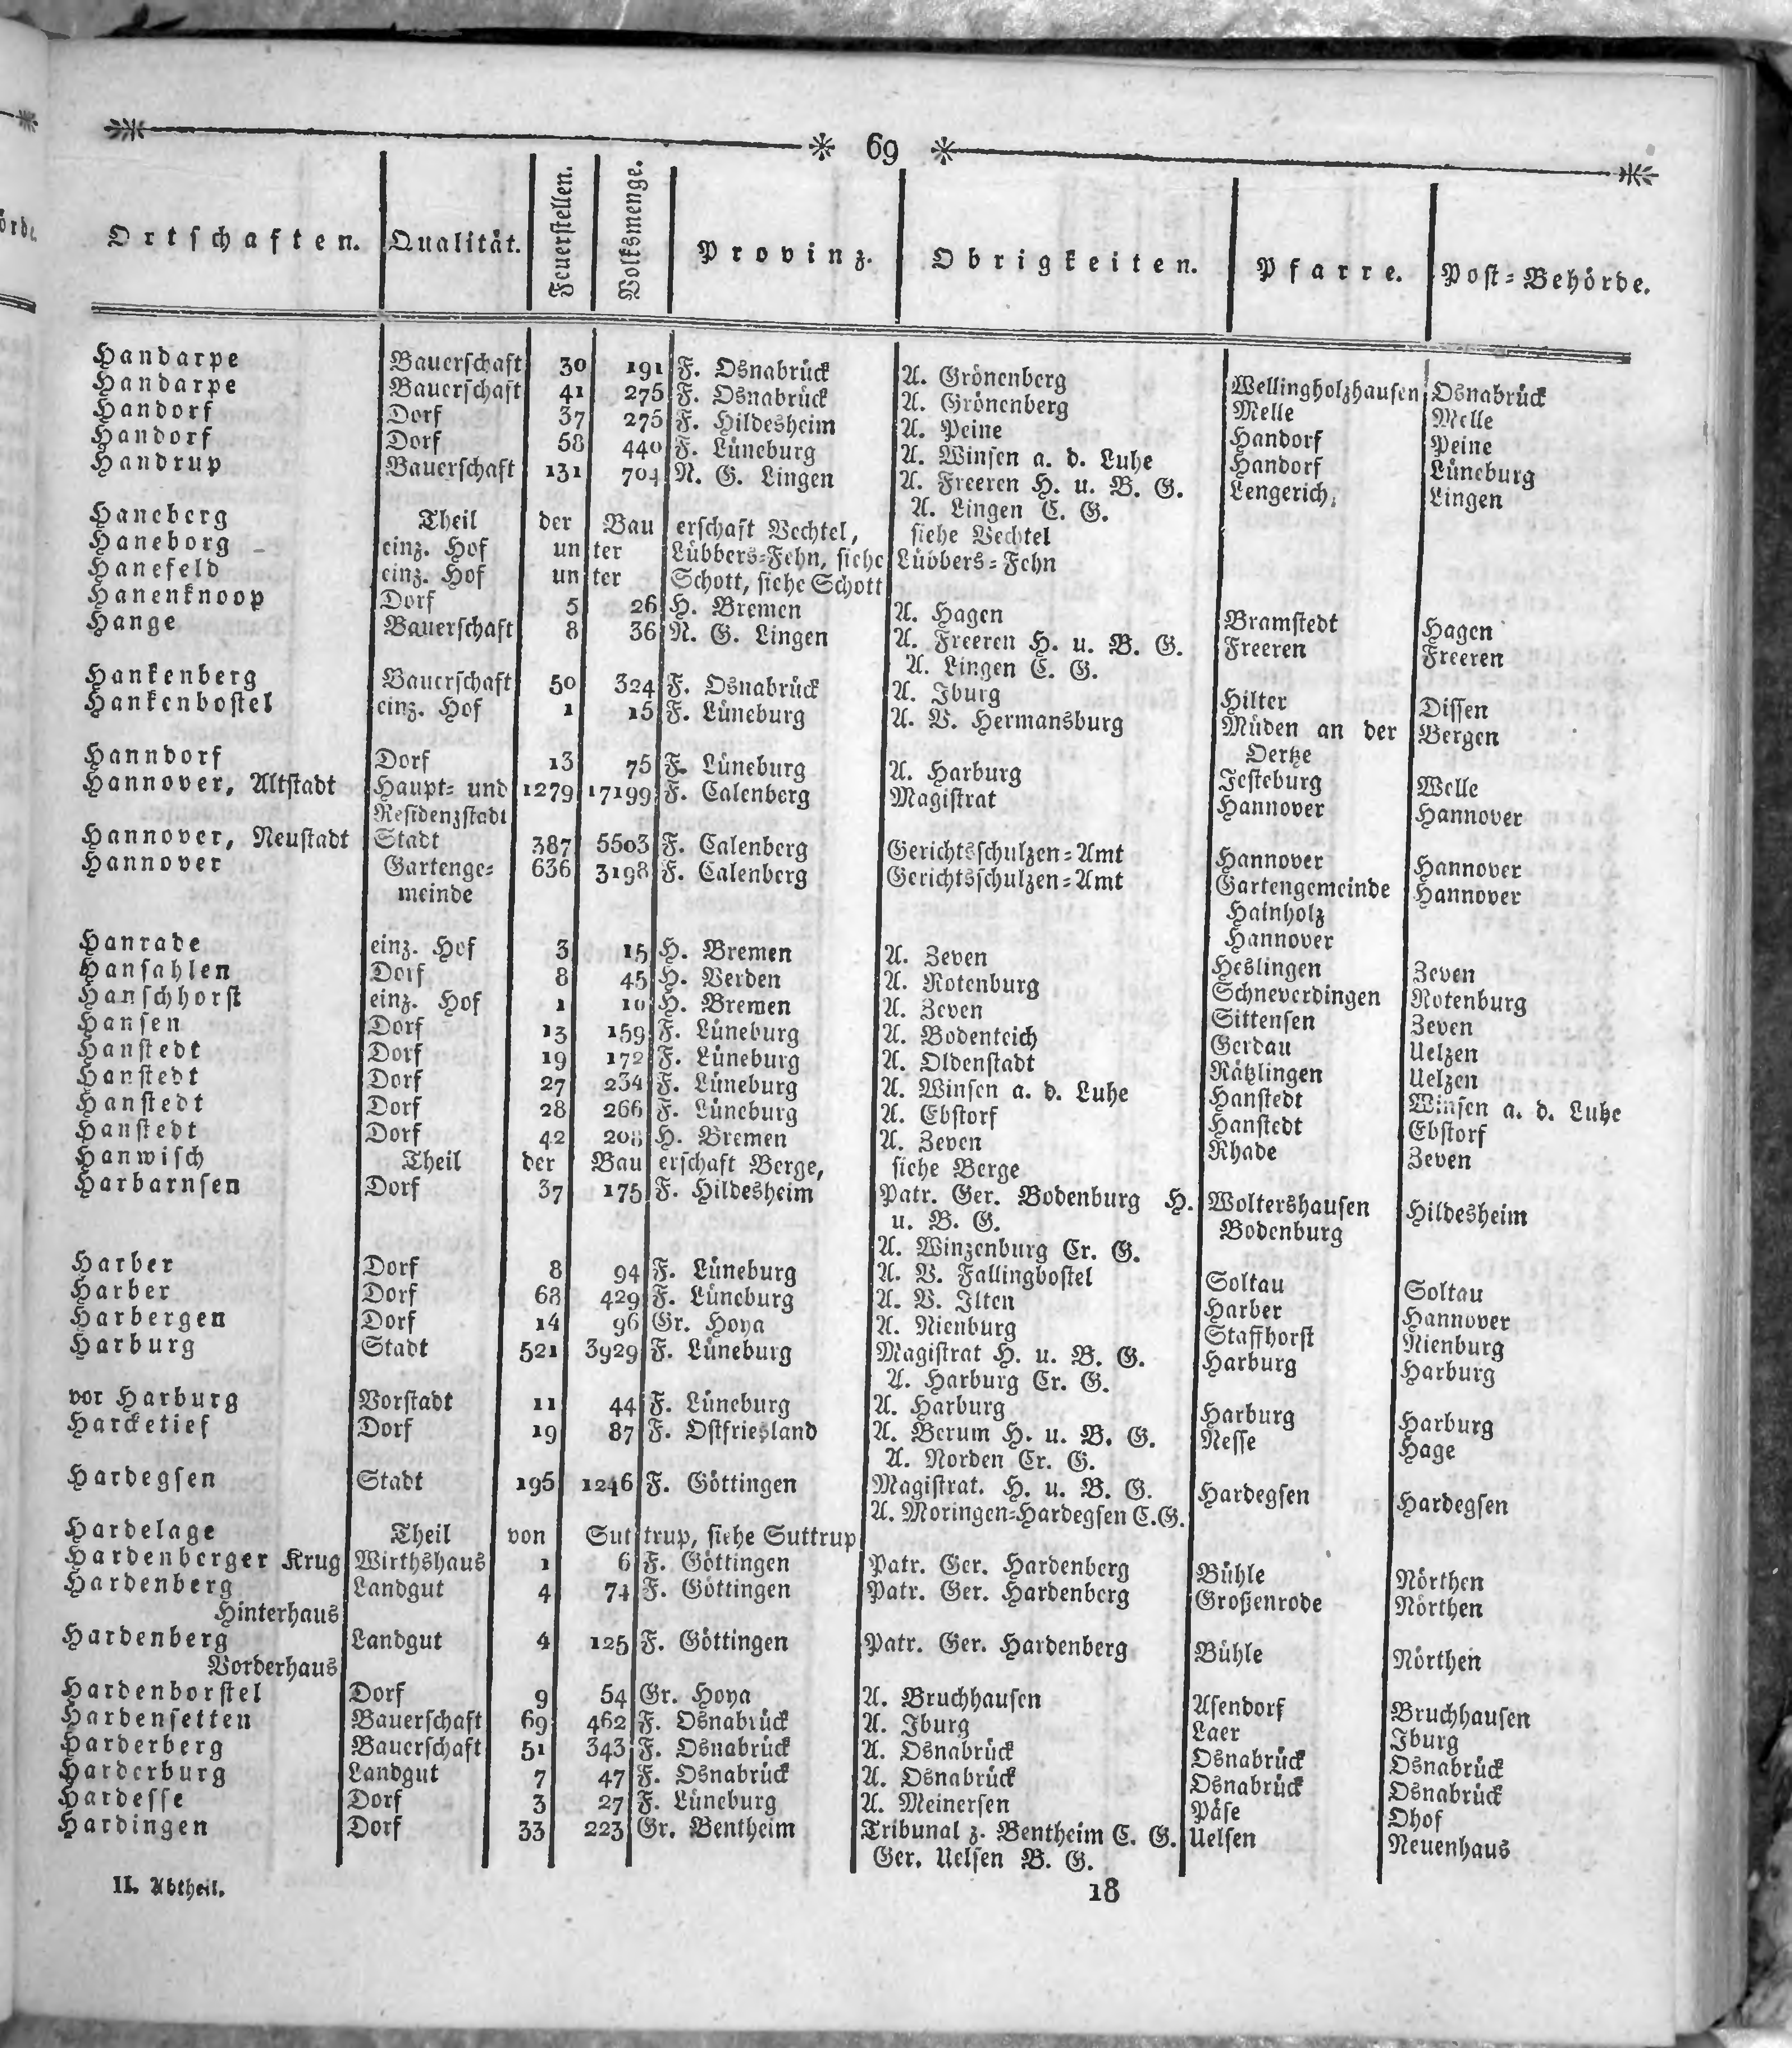 69
Ortschaften. Qualität. Feuerstellen. Volksmenge. Provinz. Obrigkeiten. Pfarre. Post-Behörde.
Handarpe Bauerschaft 30 191 F. Osnabrück A. Grönenberg Wellingholzhausen Osnabrück
Handarpe Bauerschaft 41 275 F. Osnabrück A. Grönenberg Melle Melle
Handorf Dorf 37 275 F. Hildesheim A. Peine Handorf Peine
Handorf Dorf 58 440 F. Lüneburg A. Winsen a. d. Luhe Handorf Lüneburg
Handrup Bauerschaft 131 704 N. G. Lingen A. Freeren H. u. B. G. Lengerich Lingen
A. Lingen C. G.
Haneberg Theil der Bau erschaft Vechtel, siehe Vechtel
Haneborg einz. Hof un ter Lübbers-Fehn, siehe Lübbers-Fehn
Hanefeld einz. Hof un ter Schott, siehe Schott
Hanenknoop Dorf 5 26 H. Bremen A. Hagen Bramstedt Hagen
Hange Bauerschaft 8 36 N. G. Lingen A. Freeren H. u. B. G. Freeren Freeren
A. Lingen C. G.
Hankenberg Bauerschaft 50 324 F. Osnabrück A. Iburg Hilter Dissen
Hankenbostel einz. Hof 1 15 F. Lüneburg A. V. Hermansburg Müden an der Bergen
Oertze
Hanndorf Dorf 13 75 F. Lüneburg A. Harburg Jesteburg Welle
Hannover, Altstadt Haupt- und 1279 17199 F. Calenberg Magistrat Hannover Hannover
Residenzstadt
Hannover, Neustadt Stadt 387 5503 F. Calenberg Gerichtsschulzen-Amt Hannover Hannover
Hannover Gartenge- 636 3198 F. Calenberg Gerichtsschulzen-Amt Gartengemeinde Hannover
meinde Hainholz
Hannover
Hanrade einz. Hof 3 15 H. Bremen A. Zeven Heslingen Zeven
Hansahlen Dorf 8 45 H. Verden A. Rotenburg Schneverdingen Rotenburg
Hanschhorst einz. Hof 1 10 H. Bremen A. Zeven Sittensen Zeven
Hansen Dorf 13 159 F. Lüneburg A. Bodenteich Gerdau Uelzen
Hanstedt Dorf 19 172 F. Lüneburg A. Oldenstadt Rätzlingen Uelzen
Hanstedt Dorf 27 234 F. Lüneburg A. Winsen a. d. Luhe Hanstedt Winsen a. d. Luhe
Hanstedt Dorf 28 266 F. Lüneburg A. Ebstorf Hanstedt Ebstorf
Hanstedt Dorf 42 208 H. Bremen A. Zeven Rhade Zeven
Hanwisch Theil der Bau erschaft Berge, siehe Berge
Harbarnsen Dorf 37 175 F. Hildesheim Patr. Ger. Bodenburg H. Woltershausen Hildesheim
u. B. G. Bodenburg
A. Winzenburg Cr. G.
Harber Dorf 8 94 F. Lüneburg A. V. Fallingbostel Soltau Soltau
Harber Dorf 68 429 F. Lüneburg A. V. Ilten Harber Hannover
Harbergen Dorf 14 96 Gr. Hoya A. Nienburg Staffhorst Nienburg
Harburg Stadt 521 3929 F. Lüneburg Magistrat H. u. B. G. Harburg Harburg
A. Harburg Cr. G.
vor Harburg Vorstadt 11 44 F. Lüneburg A. Harburg Harburg Harburg
Harcketief Dorf 19 87 F. Ostfriesland A. Berum H. u. B. G. Nesse Hage
A. Norden Cr. G.
Hardegsen Stadt 195 1246 F. Göttingen Magistrat. H. u. B. G. Hardegsen Hardegsen
A. Moringen-Hardegsen C.G.
Hardelage Theil von Sut trup, siehe Suttrup
Hardenberger Krug Wirthshaus 1 6 F. Göttingen Patr. Ger. Hardenberg Bühle Nörthen
Hardenberg Landgut 4 74 F. Göttingen Patr. Ger. Hardenberg Großenrode Nörthen
Hinterhaus
Hardenberg Landgut 4 125 F. Göttingen Patr. Ger. Hardenberg Bühle Nörthen
Vorderhaus
Hardenborstel Dorf 9 54 Gr. Hoya A. Bruchhausen Asendorf Bruchhausen
Hardensetten Bauerschaft 69 462 F. Osnabrück A. Iburg Laer Iburg
Harderberg Bauerschaft 51 343 F. Osnabrück A. Osnabrück Osnabrück Osnabrück
Harderburg Landgut 7 47 F. Osnabrück A. Osnabrück Osnabrück Osnabrück
Hardesse Dorf 3 27 F. Lüneburg A. Meinersen Päse Ohof
Hardingen Dorf 33 223 Gr. Bentheim Tribunal z. Bentheim C. G. Uelsen Neuenhaus
Ger. Uelsen B. G.
II. Abtheil. 18